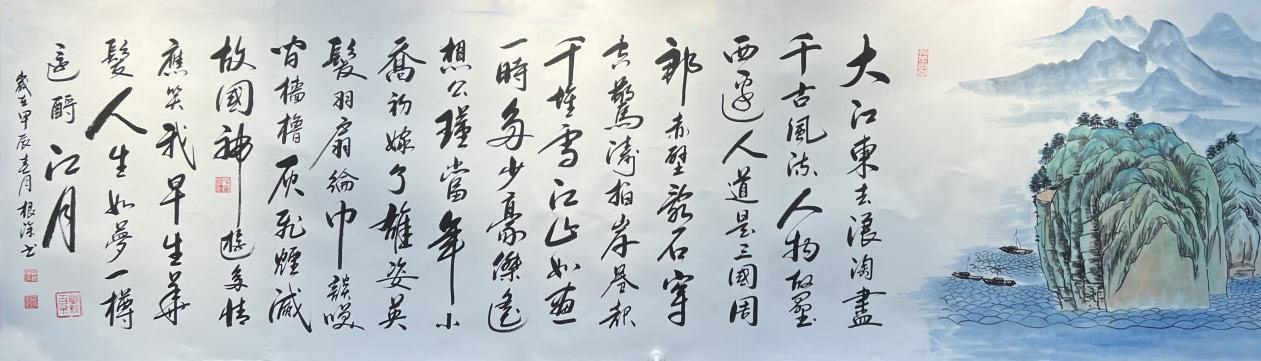 大江東去浪淘盡
千古風流人物故壘
西邊人道是三國周
郎赤壁亂石穿
空驚濤拍岸卷起
千堆雪江山如畫
一時多少豪傑遙
想公瑾當年小
喬初嫁了雄姿英
髮羽扇綸巾談咲
間檣櫓灰飛煙滅
故國神遊多情
應笑我早生華
髮人生如夢一樽
還酹江月
歲在甲辰春月根深書